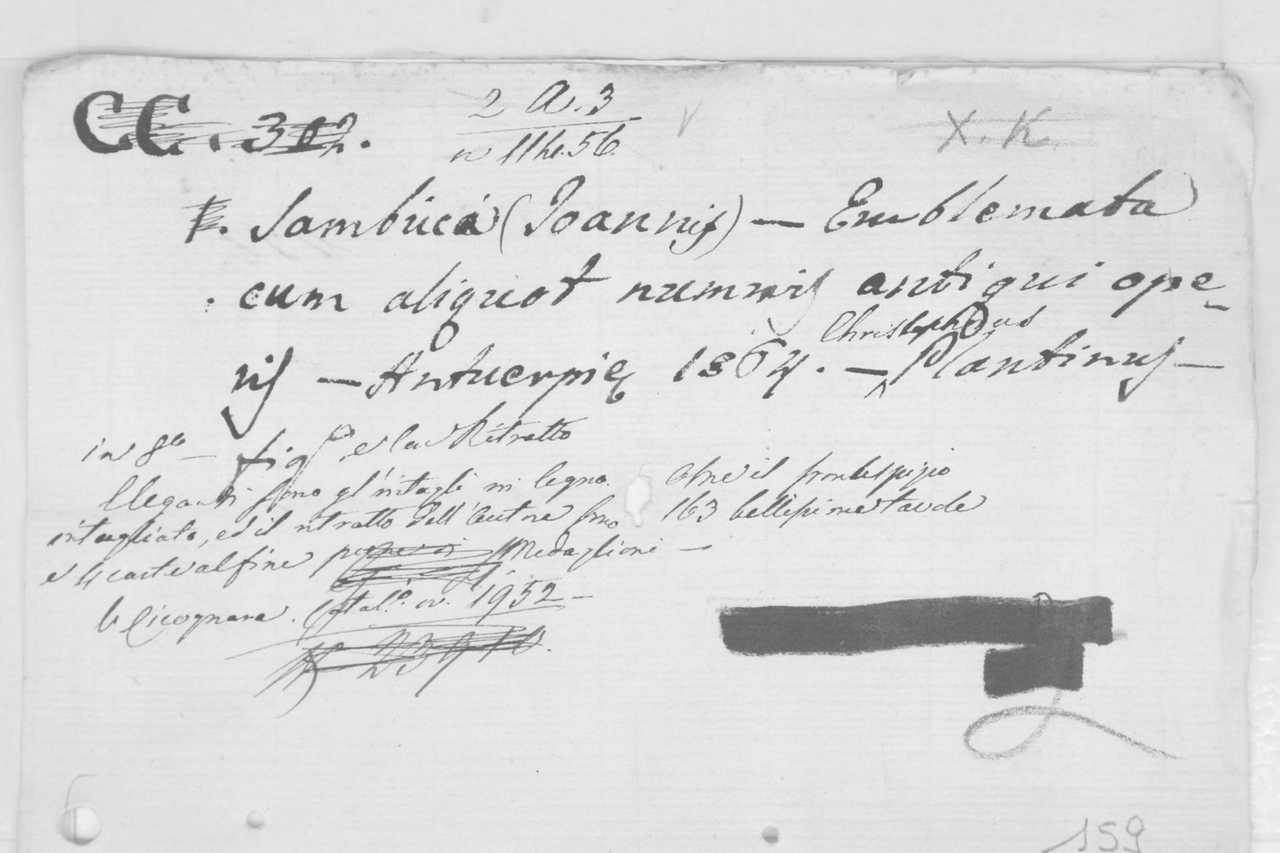 CC. 302.
2 A. 3
X. K.
Sambuca (Joannis) — Emblemata
cum aliquot nummis antiqui ope-
ris — Antuerpię 1564. — Christophorus Plantinus —
in 8º — fig e Ritratto
Eleganti sono gl'intagli in legno. Oltre il frontespizio
intagliato, ed il ritratto dell'Autore sono 163 bellissime tavole
e 4 carte al fine Medaglioni —
Cicognara. Catal.º 1952 —
159